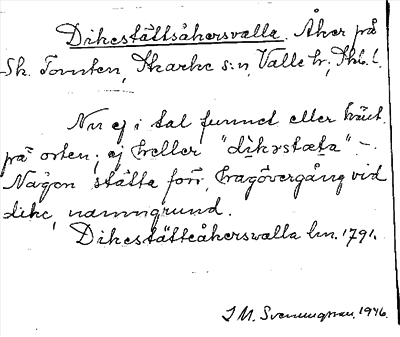 Dikestättsåkersvalla. Åker på
Sk. Tomten, Skarke s:n, Valle hd, Skb. l.
Nu ej i tal funnet eller känt
på orten; ej heller "dikəstæta" –.
Någon stätta förr, hagövergång vid
dike, namngrund.
Dikestätteåkersvalla lm. 1791.
J M. Svenungsson, 1946.